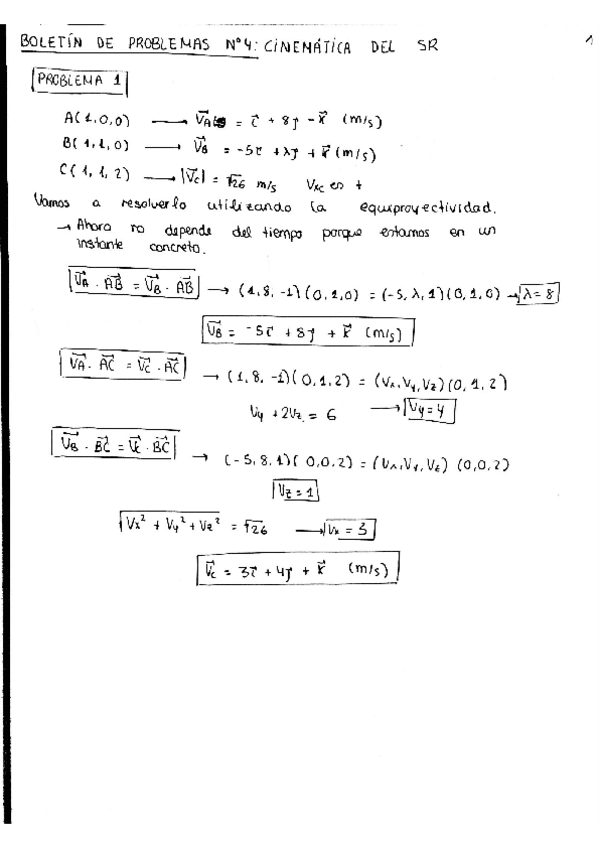 BOLETÍN DE PROBLEMAS Nº4: CINEMÁTICA DEL SR 1
PROBLEMA 1
A(1,0,0) → V⃗A = i⃗ + 8j⃗ - k⃗ (m/s)
B(1,1,0) → V⃗B = -5i⃗ + λj⃗ + k⃗ (m/s)
C(1,1,2) → |V⃗c| = √26 m/s Vxc es +
Vamos a resolverlo utilizando la equiproyectividad.
→ Ahora no depende del tiempo porque estamos en un
instante concreto.
V⃗A · AB⃗ = V⃗B · AB⃗ → (1, 8, -1)(0,1,0) = (-5, λ, 1)(0,1,0) → λ = 8
V⃗B = -5i⃗ + 8j⃗ + k⃗ (m/s)
V⃗A · AC⃗ = V⃗C · AC⃗ → (1, 8, -1)(0,1,2) = (Vx, Vy, Vz)(0,1,2)
Vy + 2Vz = 6 → Vy = 4
V⃗B · BC⃗ = V⃗C · BC⃗ → (-5, 8, 1)(0,0,2) = (Vx, Vy, Vz)(0,0,2)
Vz = 1
√Vx² + Vy² + Vz² = √26 → Vx = 3
V⃗c = 3i⃗ + 4j⃗ + k⃗ (m/s)